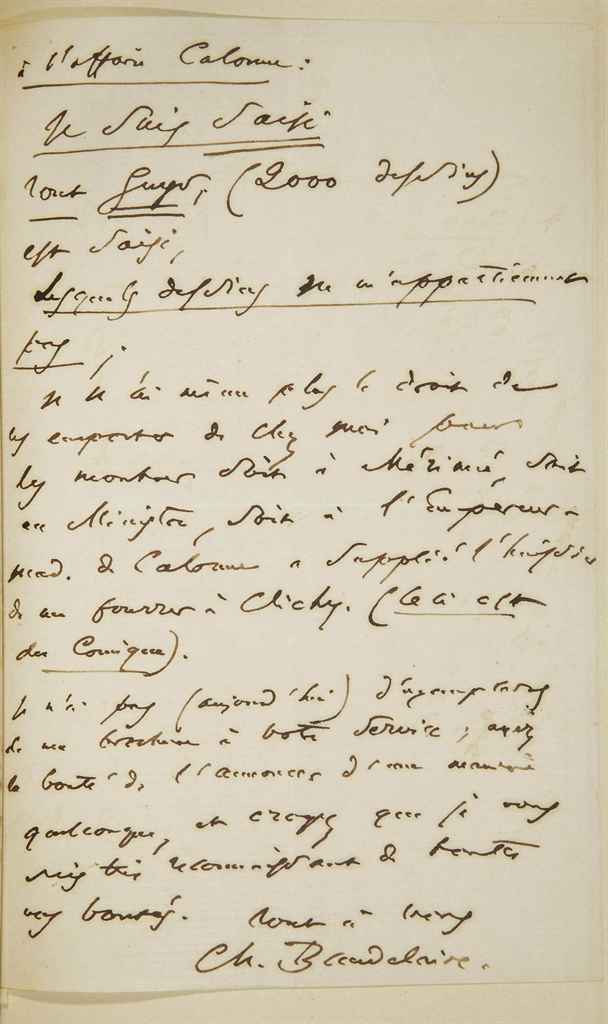 à l'affaire Calonne :
Je suis saisi
tout Guys, (2000 dessins)
est saisi,
lesquels dessins ne m'appartiennent
pas ;
Je n'ai même plus le droit de
les emporter de chez moi pour
les montrer soit à Mérimée, soit
au Ministre, soit à l'Empereur –
mad. de Calonne a supplié l'huissier
de me fourrer à Clichy. (Ceci est
du Comique).
Je n'ai pas (aujourd'hui) d'exemplaires
de ma brochure à votre service ; ayez
la bonté de l'annoncer d'une manière
quelconque, et croyez que je vous
suis très reconnaissant de toutes
vos bontés. Tout à vous
Ch. Baudelaire.